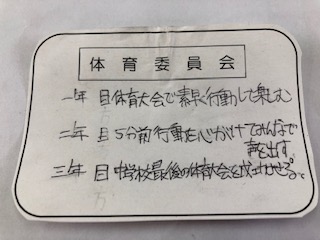 体育委員会
一年 目 体育大会で素早く行動して楽しむ
二年 目 5分前行動を心がけてみんなで
声を出す。
三年 目 中学校最後の体育大会を成功させる。